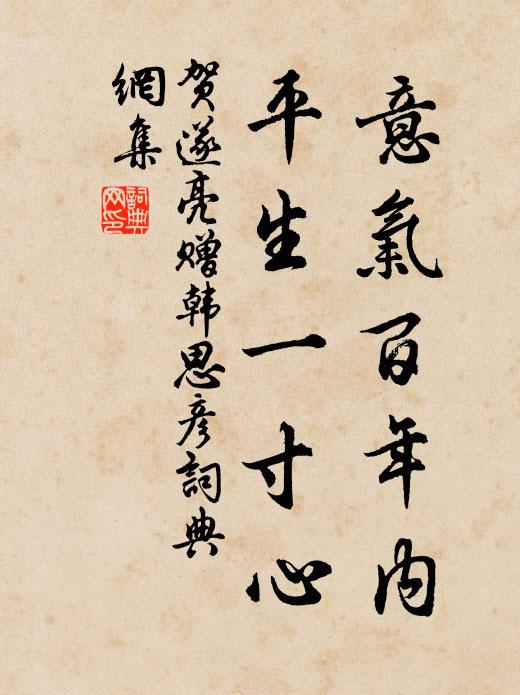 意氣百年內
平生一寸心
贺遂亮赠韩思彦詞典
網集
詞典
网印